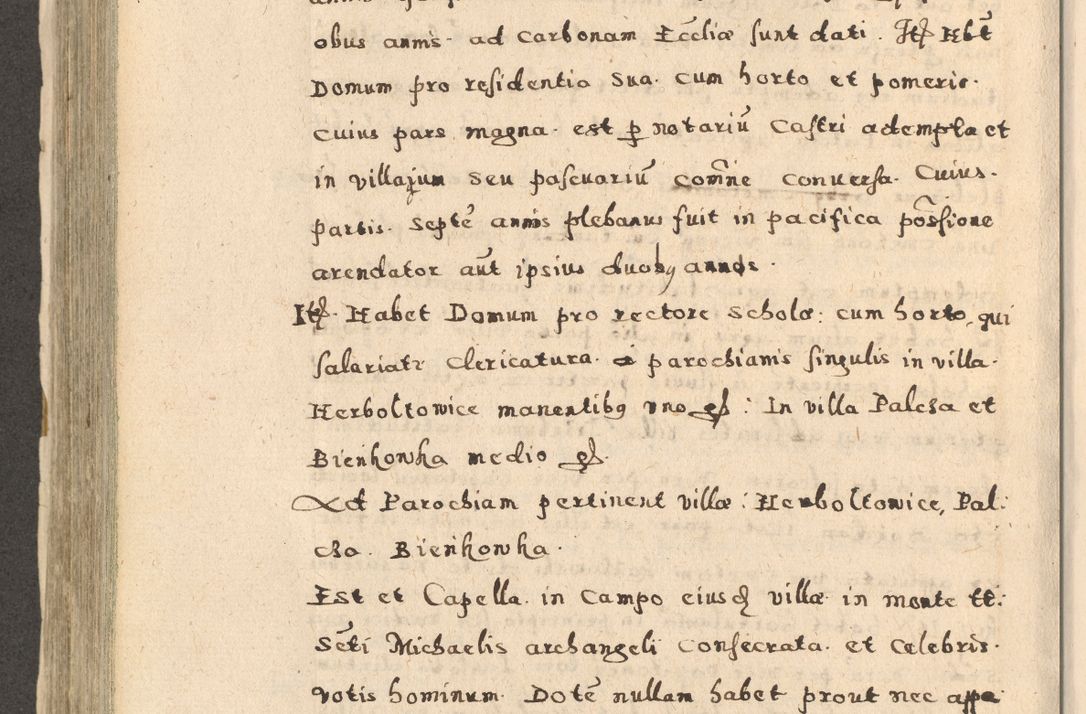 obus annis ad Carbonam Ecclīæ sunt dati. Itē Hēt
Domum pro residentia sua. cum horto et pomerio.
cuius pars magna. est p notariū Castri adempta et
in villarum seu pascuariū com̄ne conuersa. Cuius.
partis. septē annis plebanus fuit in pacifica pōssione
arendator aūt ipsius duobꝫ annis.
Itē. Habet Domum pro rectore scholæ: cum horto, qui
salariatr Clericatura. a parochianis singulis in villa.
Herboltowice manentibꝫ vno gś: In villa Palcza et
Bieńkowka medio gś.
Ad Parochiam pertinent villæ: Herboltowice, Pal:
cza. Bieńkowka.
Est et Capella. in Campo eiusdē villæ in monte tt:
Scti Michaelis archangeli Consecrata. et Celebris.
votis hominum. Dotē nullam habet prout nec appa